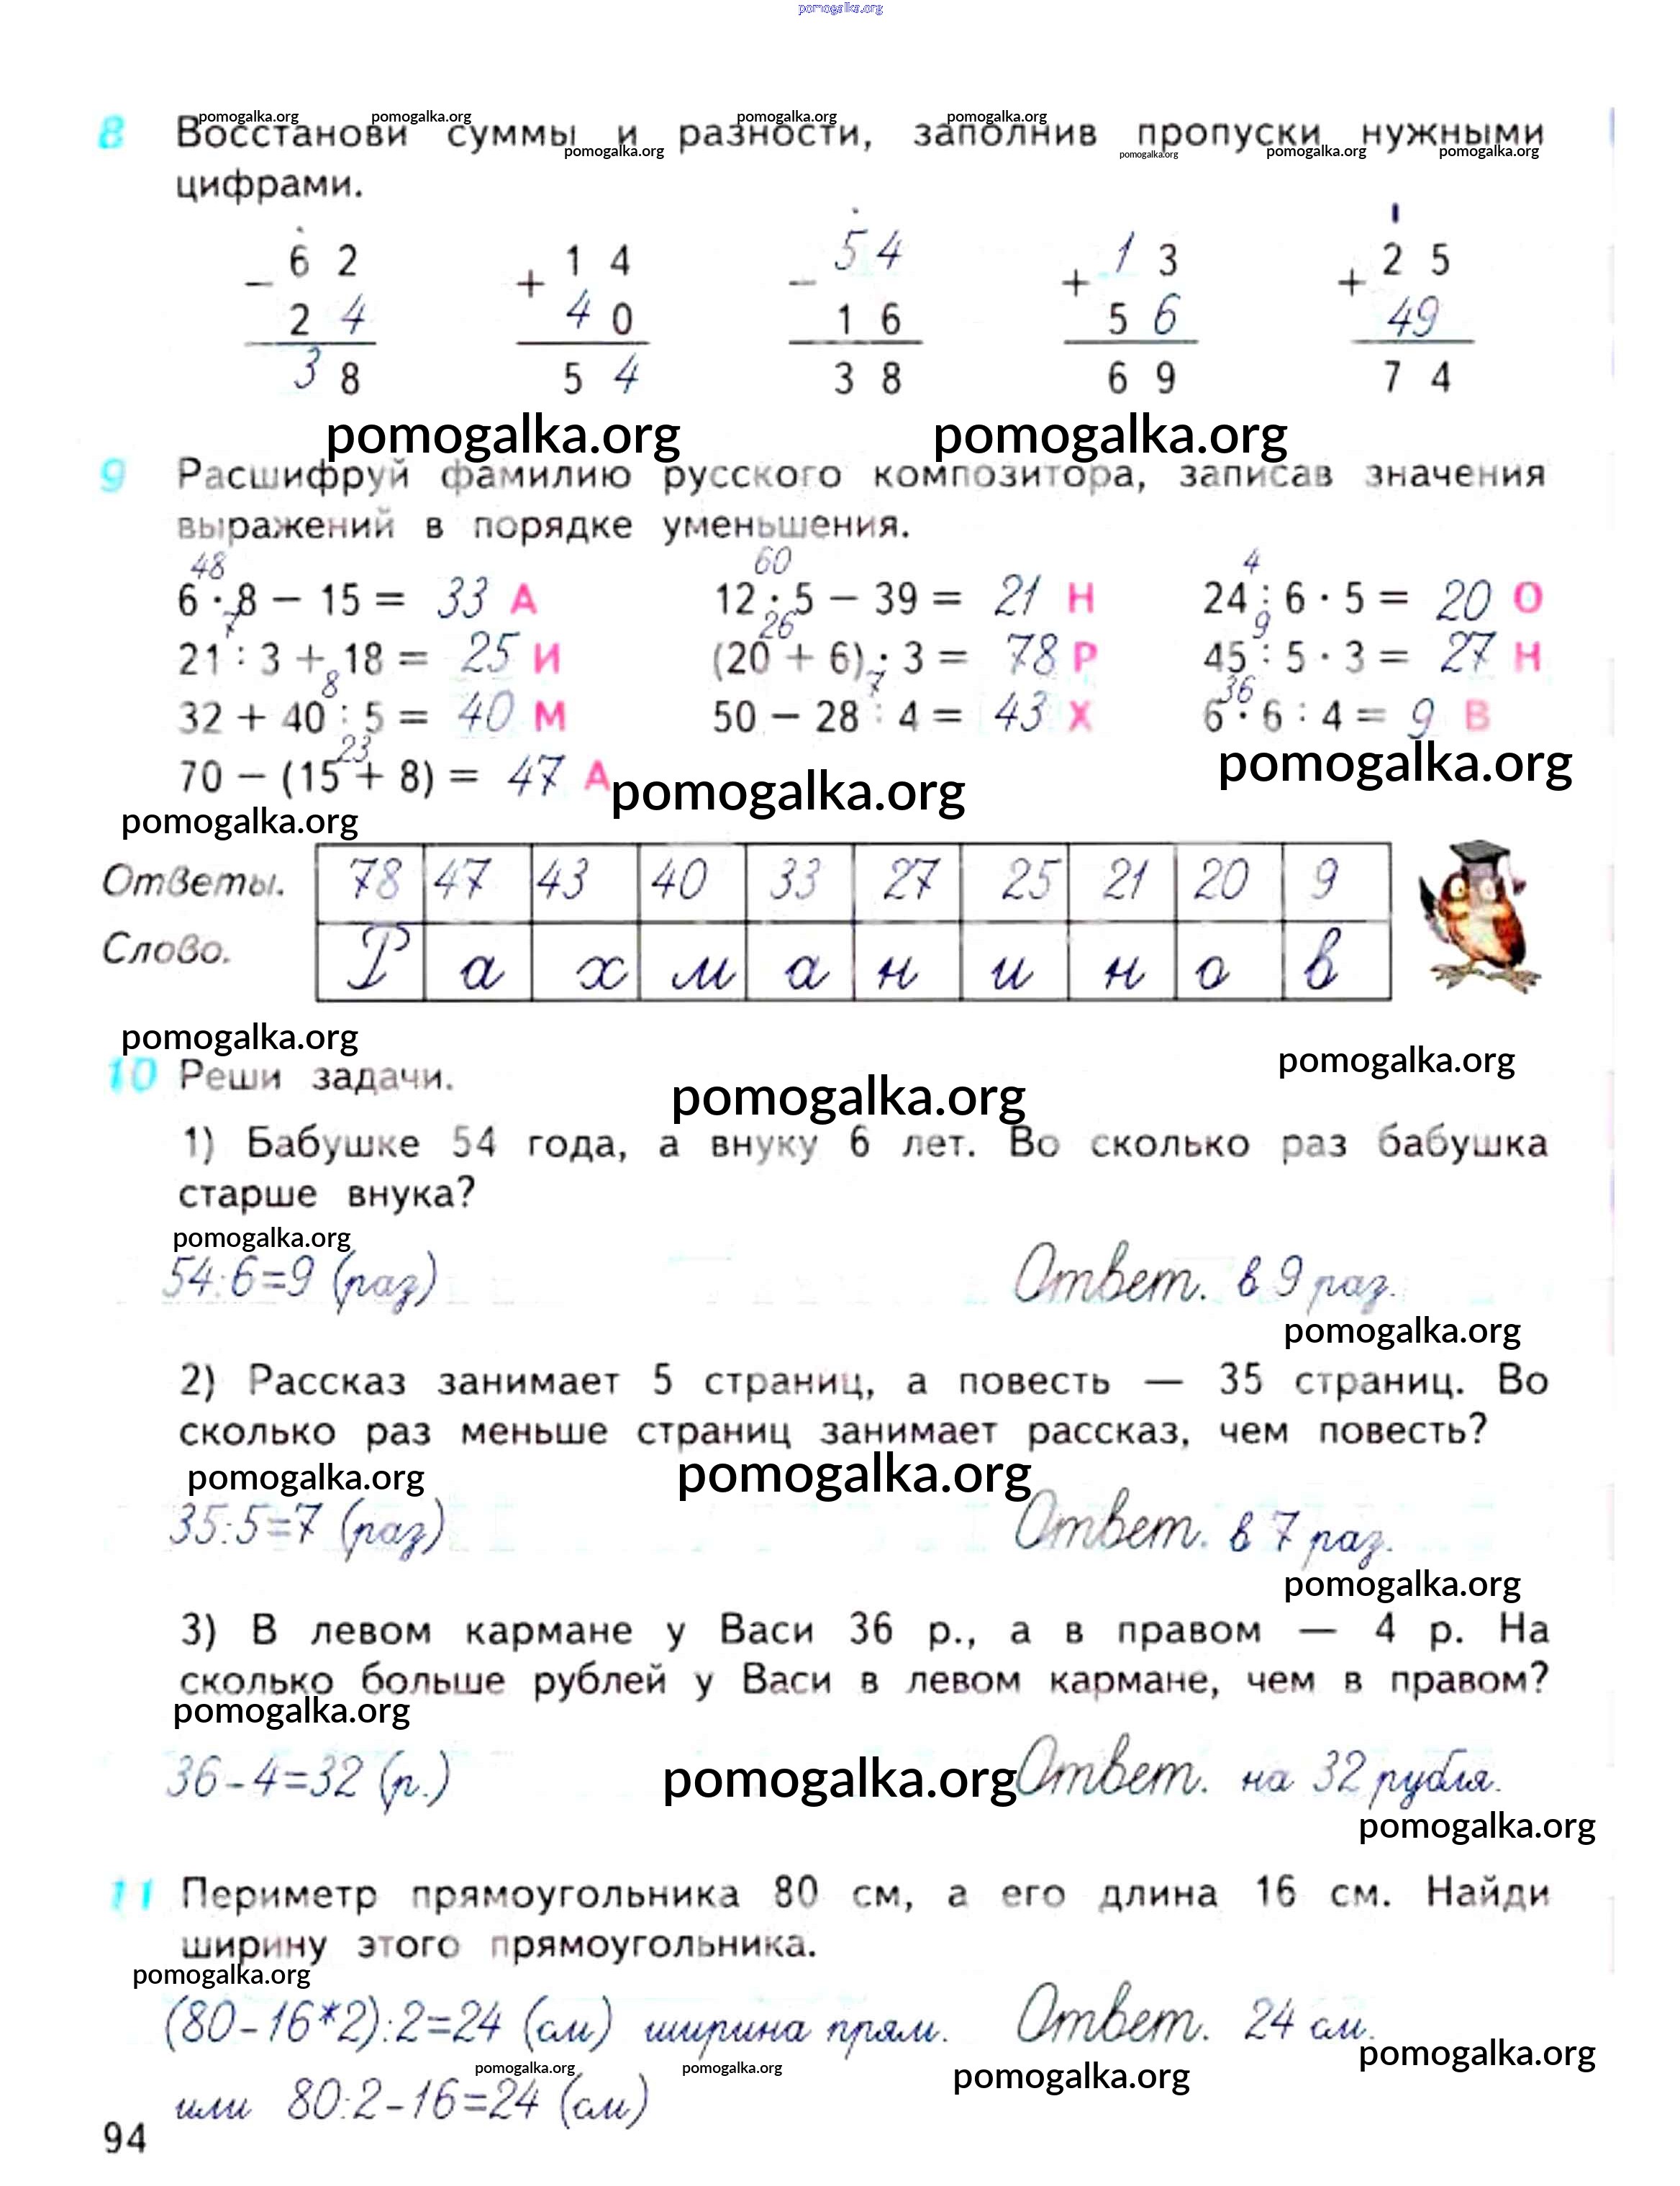 pomogalka.org
pomogalka.org pomogalka.org pomogalka.org pomogalka.org
8 Восстанови суммы и разности, заполнив пропуски нужными
pomogalka.org pomogalka.org pomogalka.org pomogalka.org
цифрами.
6 2 1 4 5 4 1 3 2 5
− + − + +
2 4 4 0 1 6 5 6 49
3 8 5 4 3 8 6 9 7 4
pomogalka.org pomogalka.org
9 Расшифруй фамилию русского композитора, записав значения
выражений в порядке уменьшения.
48 60 4
6 · 8 − 15 = 33 А 12 · 5 − 39 = 21 Н 24 : 6 · 5 = 20 О
7 26 9
21 : 3 + 18 = 25 И (20 + 6) · 3 = 78 Р 45 : 5 · 3 = 27 Н
8 7 36
32 + 40 : 5 = 40 М 50 − 28 : 4 = 43 Х 6 · 6 : 4 = 9 В
23
70 − (15 + 8) = 47 А
pomogalka.org pomogalka.org
pomogalka.org
Ответы. 78 47 43 40 33 27 25 21 20 9
Слово. Р а х м а н и н о в
pomogalka.org
pomogalka.org
10 Реши задачи.
pomogalka.org
1) Бабушке 54 года, а внуку 6 лет. Во сколько раз бабушка
старше внука?
pomogalka.org
54:6=9 (раз) Ответ. в 9 раз.
pomogalka.org
2) Рассказ занимает 5 страниц, а повесть — 35 страниц. Во
сколько раз меньше страниц занимает рассказ, чем повесть?
pomogalka.org pomogalka.org
35:5=7 (раз) Ответ. в 7 раз.
pomogalka.org
3) В левом кармане у Васи 36 р., а в правом — 4 р. На
сколько больше рублей у Васи в левом кармане, чем в правом?
pomogalka.org
36-4=32 (р.) pomogalka.org Ответ. на 32 рубля.
pomogalka.org
11 Периметр прямоугольника 80 см, а его длина 16 см. Найди
ширину этого прямоугольника.
pomogalka.org
(80-16*2):2=24 (см) ширина прям. Ответ. 24 см.
pomogalka.org pomogalka.org pomogalka.org pomogalka.org
или 80:2-16=24 (см)
94